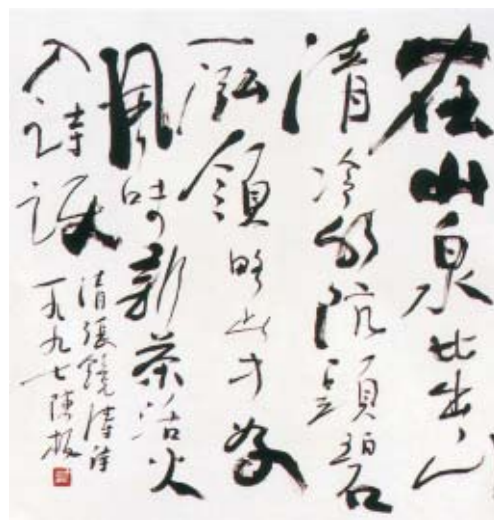 在山泉比出山
清冷阬頭碧
一泓領略此好
風味新茶活火
入詩
清張鏡濤詩
一九九七陳